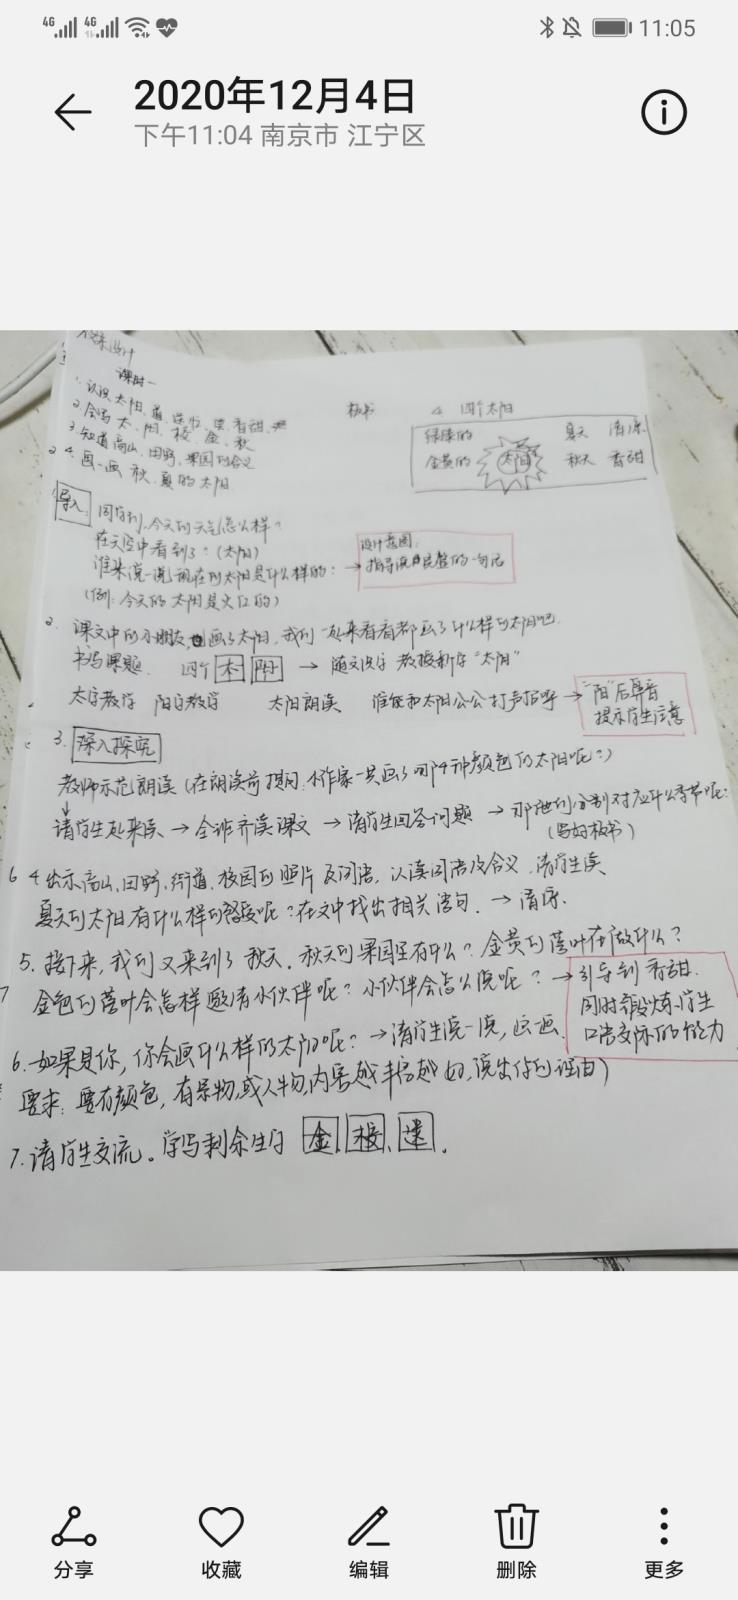 4G 4G 11:05
2020年12月4日
下午11:04 南京市 江宁区
课时一
1. 认识太阳、道、送、香甜
2. 会写 太、阳、校、金、秋
3. 知道高山、田野、果园的含义
4. 画一画 秋、夏的太阳
板书
4 四个太阳
绿绿的
金黄的
太阳
夏天 清凉
秋天 香甜
导入
同学们,今天的天气怎么样?
在天空中看到了?(太阳)
谁来说一说现在的太阳是什么样的:→
(例:今天的太阳是火红的)
设计意图:
指导说完整的一句话
2. 课文中的小朋友,画了太阳,我们一起来看看都画了什么样的太阳吧.
书写课题 四个 太 阳 → 随文识字 教授新字"太阳"
太字教学 阳字教学 太阳朗读 谁能和太阳公公打声招呼→
"阳"后鼻音
提示学生注意
3. 深入探究
教师示范朗读(在朗读前提问,小作家一共画了哪4种颜色的太阳呢?)
请学生起来读 → 全班齐读课文 → 请学生回答问题 → 那他们分别对应什么季节呢:
(写好板书)
4 出示高山、田野、街道、校园的照片及词语,认读词语及含义,请学生读
夏天的太阳有什么样的感受呢?在文中找出相关语句. → 清凉.
5. 接下来,我们又来到了秋天.秋天的果园里有什么?金黄的落叶在做什么?
金色的落叶会怎样邀请小伙伴呢?小伙伴会怎么说呢?→
引导到香甜.
同时锻炼学生
口语交际的能力
6. 如果是你,你会画什么样的太阳呢?→请学生说一说,画一画.
要求:要有颜色,有景物,或人物,内容越丰富越好,说出你的理由)
7. 请学生交流。学写剩余生字 金
分享 收藏 编辑 删除 更多